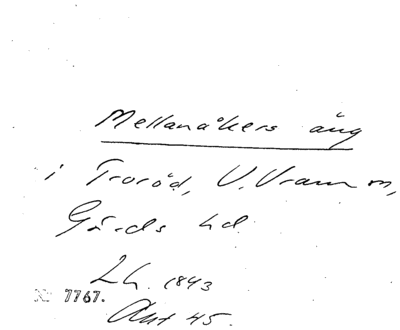 Mellanåkers äng
i Troröd, V. Vram sn,
Gärds hd
Lh. 1843
№ 7767.
Akt 45.